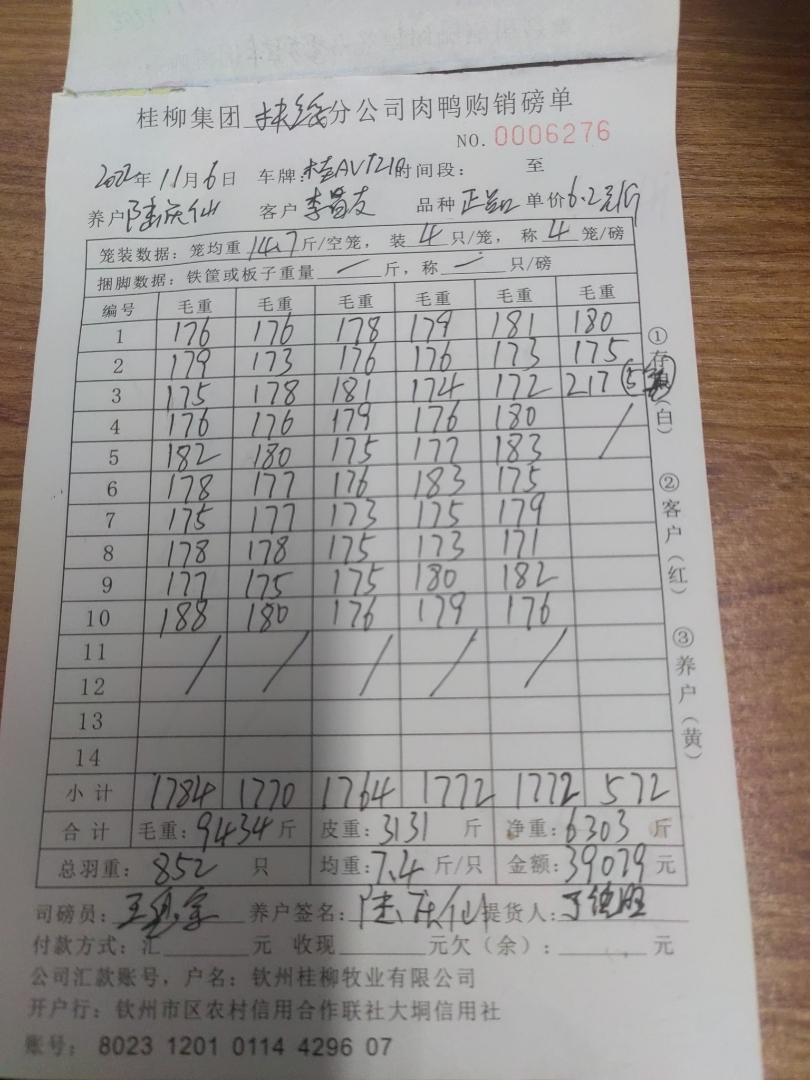 桂柳集团扶绥分公司肉鸭购销磅单
NO. 0006276
2022年11月6日 车牌:桂AV1210时间段: 至
养户 仙 客户 李昌友 品种 单价6.2元/斤
笼装数据: 笼均重 14.7 斤/空笼, 装 4 只/笼, 称 4 笼/磅
捆脚数据: 铁筐或板子重量 — 斤, 称 — 只/磅
编号 毛重 毛重 毛重 毛重 毛重 毛重
1 176 176 178 179 181 180
2 179 173 176 176 173 175
3 175 178 181 174 172 217 5
4 176 176 179 176 180 /
5 182 180 175 177 183
6 178 177 176 183 175
7 175 177 173 175 179
8 178 178 175 173 171
9 177 175 175 180 182
10 188 180 176 179 176
11 / / / / /
12
13
14
小计 1784 1770 1764 1772 1772 572
合计 毛重: 9434 斤 皮重: 3131 斤 净重: 6303 斤
总羽重: 852 只 均重: 7.4 斤/只 金额: 39079 元
司磅员: 养户签名: 仙 提货人:
付款方式: 汇 元 收现 元欠(余): 元
公司汇款账号, 户名: 钦州桂柳牧业有限公司
开户行: 钦州市区农村信用合作联社大垌信用社
账号: 8023 1201 0114 4296 07
①存根(白)
②客户(红)
③养户(黄)